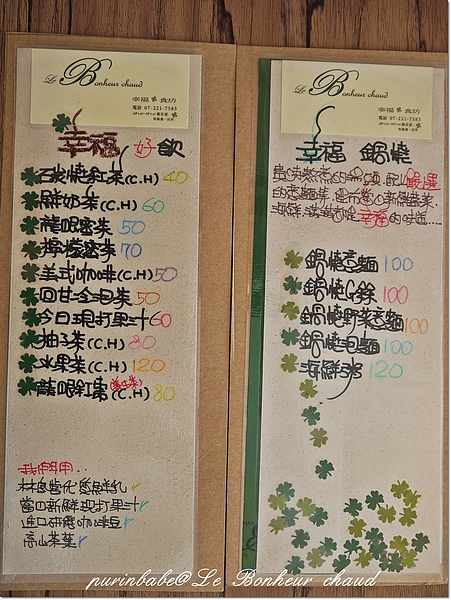 Le Bonheur chaud
幸福 食坊
電話 07-221-7583
幸福 好飲
石炭燒紅茶(C.H) 40
鮮奶茶(C.H) 60
龍眼蜜茶 50
檸檬蜜茶 70
美式咖啡(C.H) 50
回甘冷泡茶 50
今日現打果汁 60
柚子茶(C.H) 80
水果茶(C.H) 120
龍眼紅棗(C.H) 80
我們用..
當日新鮮現打果汁
進口研磨咖啡豆
高山茶葉
Le Bonheur chaud
幸福 食坊
電話 07-221-7583
幸福 鍋燒
嚴選
海鮮 幸福的味道....
鍋燒意麵 100
鍋燒冬粉 100
鍋燒野菜意麵 100
鍋燒泡麵 100
海鮮粥 120
purinbabe@Le Bonheur chaud